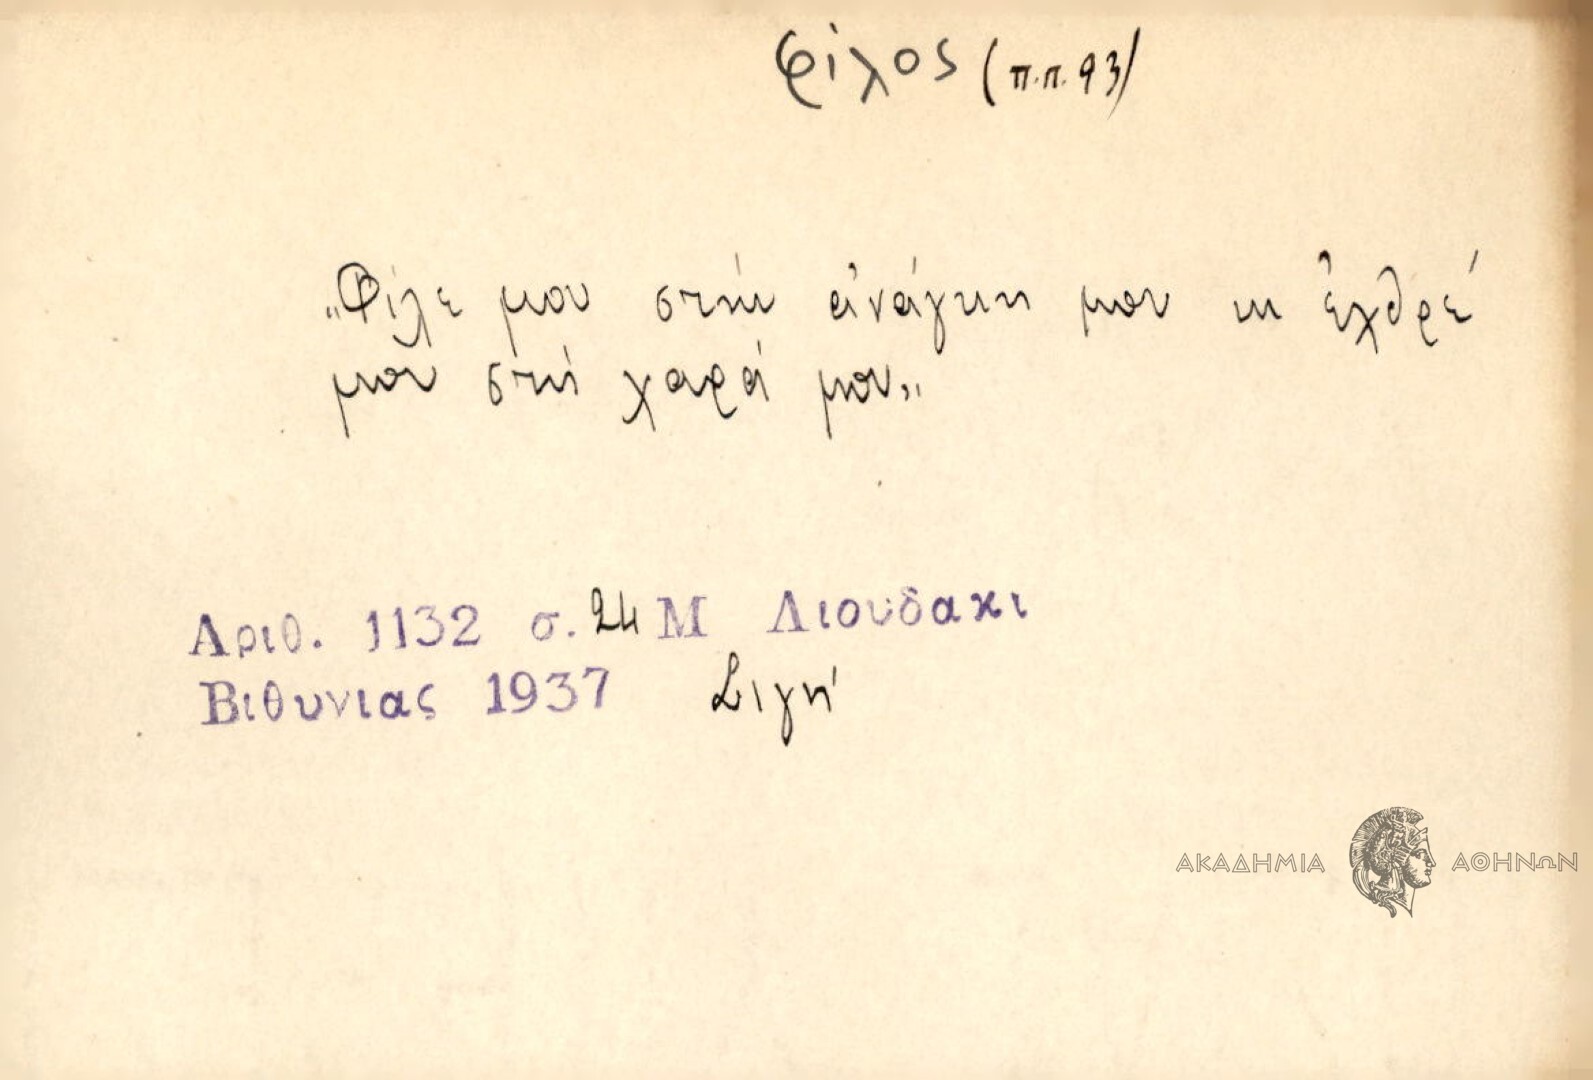 φίλος (π.π. 93)
„Φίλε μου στήν ἀνάγκη μου κι ἐχθρέ
μου στή χαρά μου„
Αριθ. 1132 σ. 24 Μ Λιουδακι
Βιθυνιας 1937 Σιγή
ΑΚΑΔΗΜΙΑ ΑΘΗΝΩΝ